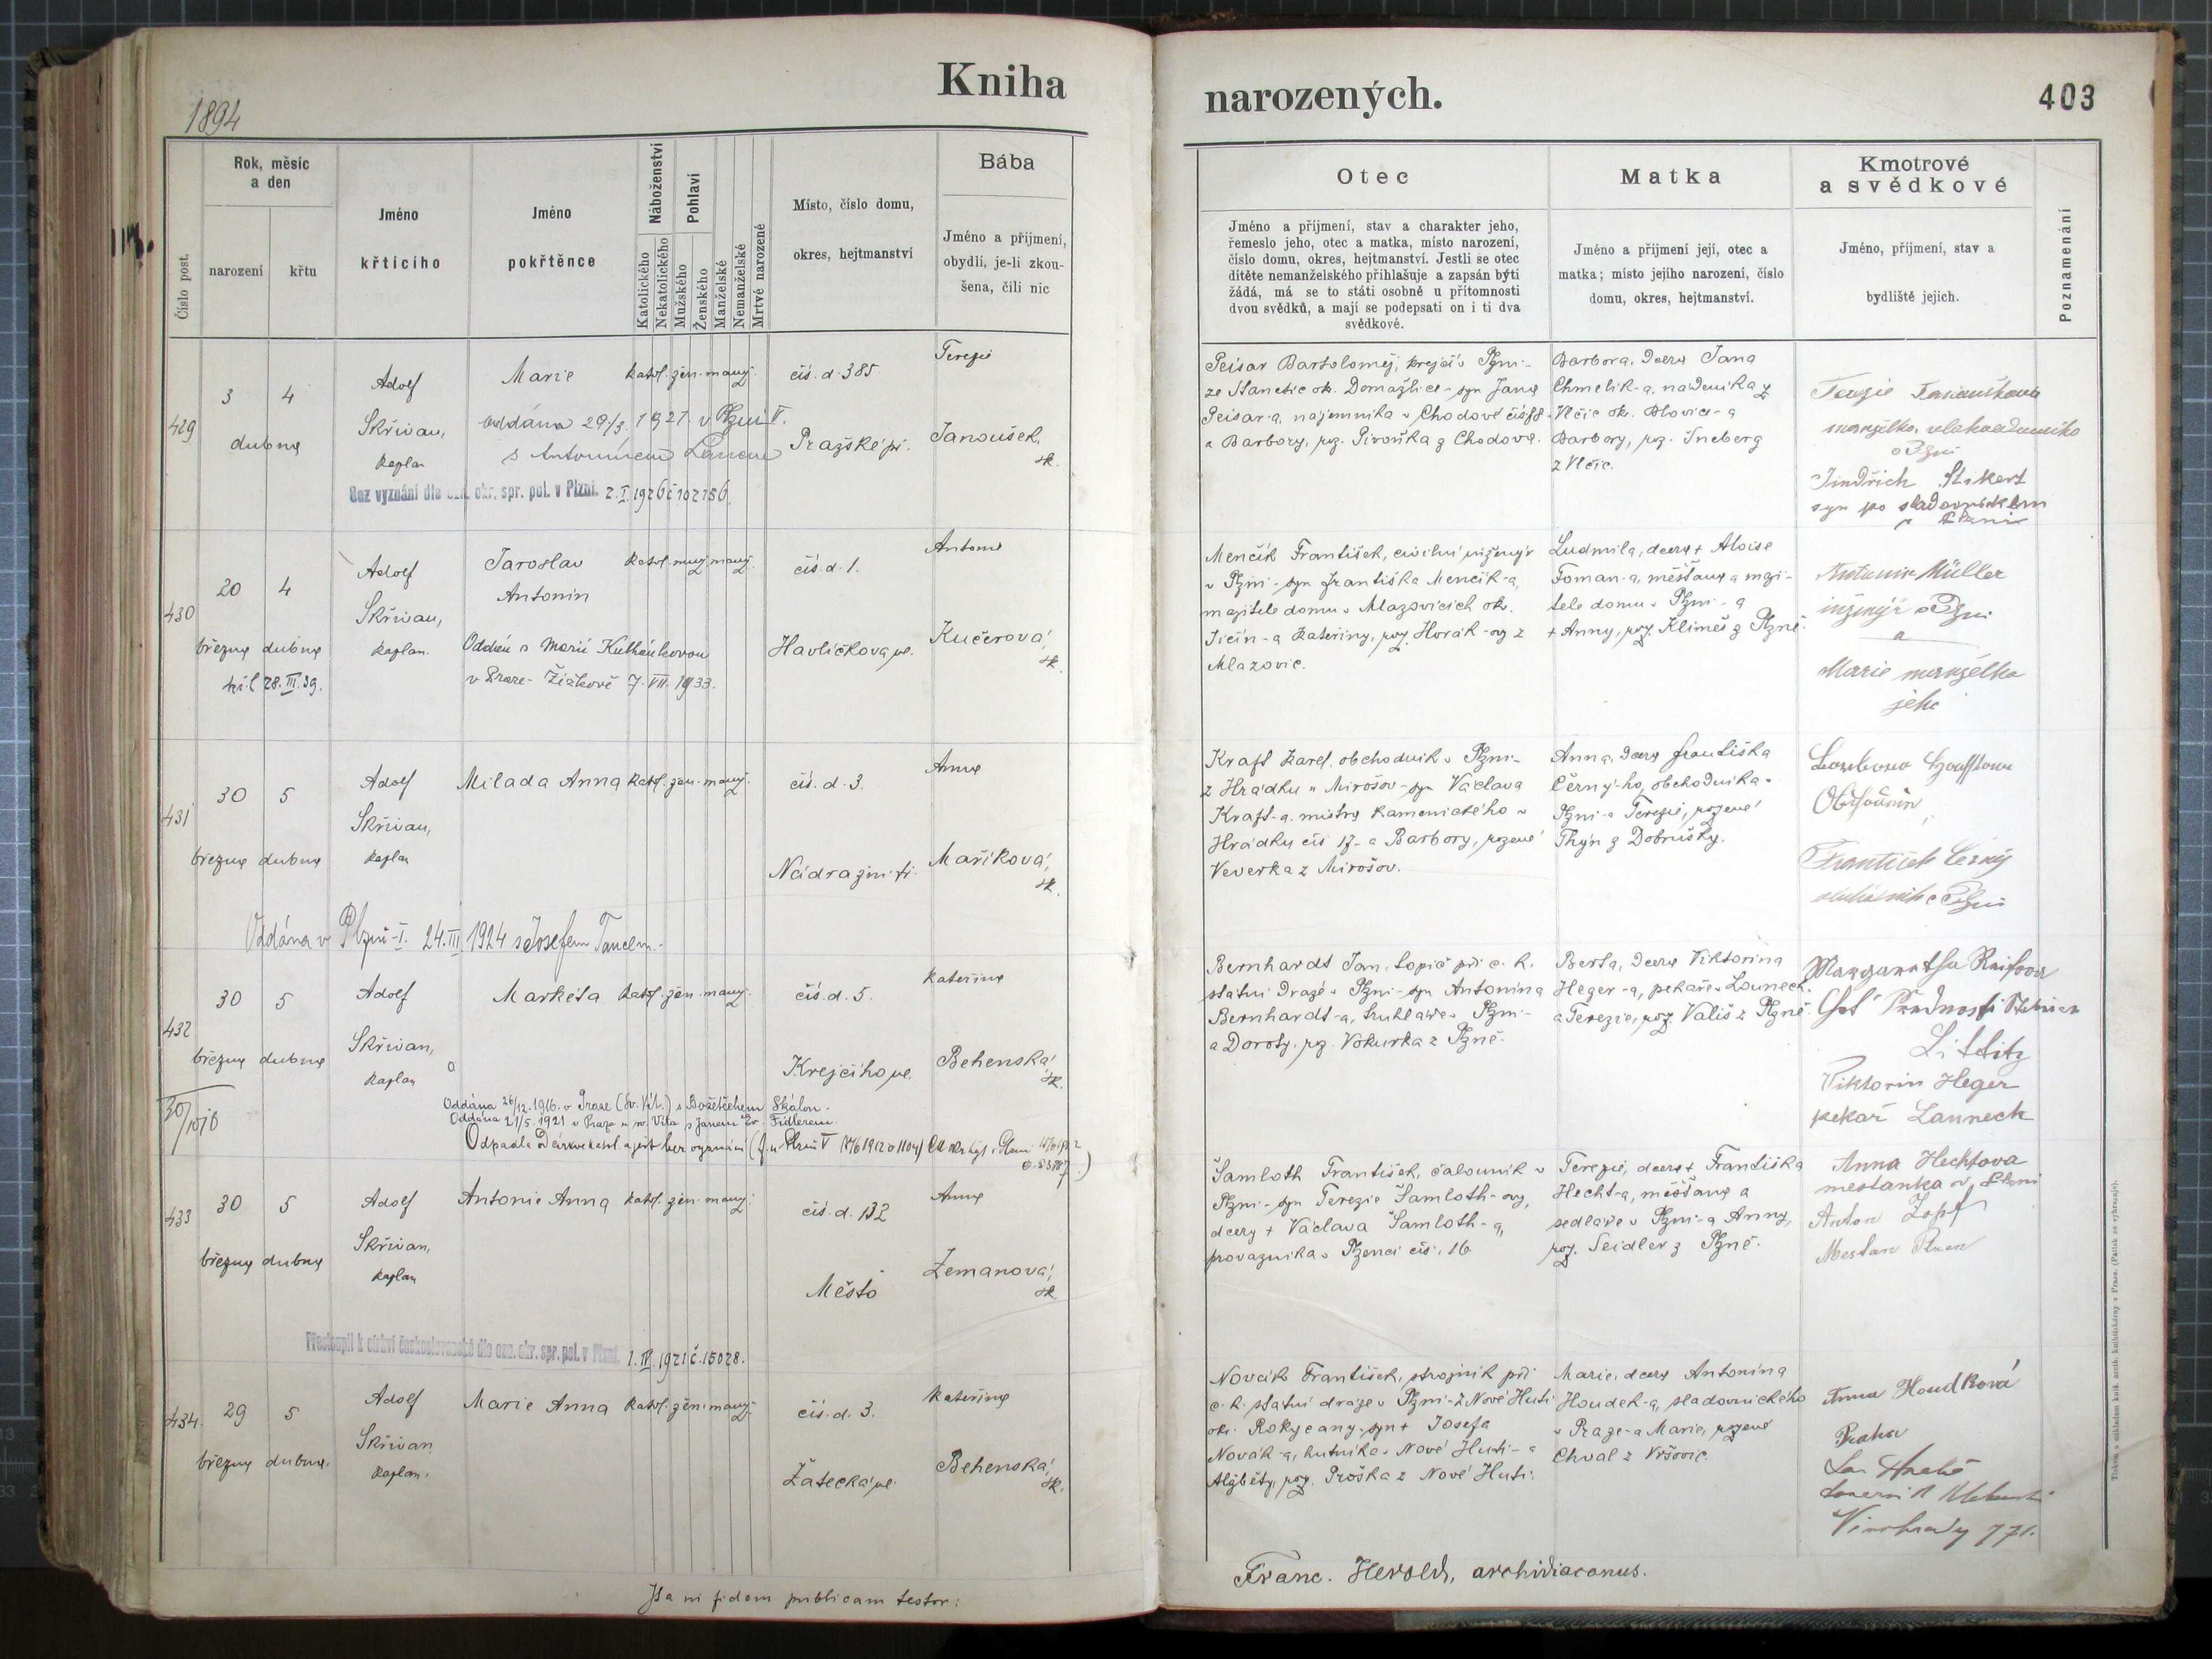 Kniha
narozených.
403
1894
Číslo post.
Rok, měsíc
a den
narození
křtu
Jméno
křtícího
Jméno
pokřtěnce
Náboženství
Katolického
Nekatolického
Pohlaví
Mužského
Ženského
Manželské
Nemanželské
Mrtvě narozené
Místo, číslo domu,
okres, hejtmanství
Bába
Jméno a přijmení,
obydlí, je-li zkou-
šena, čili nic
Otec
Jméno a příjmení, stav a charakter jeho,
řemeslo jeho, otec a matka, místo narození,
číslo domu, okres, hejtmanství. Jestli se otec
dítěte nemanželského přihlašuje a zapsán býti
žádá, má se to státi osobně u přítomnosti
dvou svědků, a mají se podepsati on i ti dva
svědkové.
Matka
Jméno a přijmení její, otec a
matka; místo jejího narození, číslo
domu, okres, hejtmanství.
Kmotrové
a svědkové
Jméno, příjmení, stav a
bydliště jejich.
Poznamenání
429
3 4
dubna
Adolf
Skřivan,
kaplan
Marie
oddána 29/3. 1921. v Plzni V.
s Antonínem
Bez vyznání dle ozn. okr. spr. pol. v Plzni. 2. I. 1926 č 102156.
katol. žen. manž.
čís. d. 385
Pražské př.
Terezie
Janoušek,
zk.
Peisar Bartoloměj, krejčí v Plzni-
ze Stanětic ok. Domažlice - syn Jana
Peisar-a, nájemníka v Chodově čís
a Barbory, roz. Pivoňka z Chodova.
Barbora, dcera Jana
Chmelík-a, nádeníka z
Vlčic ok. Blovice-a
Barbory, roz. Šneberg
z Vlčic.
Terezie
manželka
v Plzni
Jindřich Stikert
syn po
v Plzni
430
20 4
března dubna
28. III. 39.
Adolf
Skřivan,
kaplan.
Jaroslav
Antonín
Oddán s Marií Kulhánkovou
v Praze-Žižkově 7. VII. 1933.
katol. muž. manž.
čís. d. 1.
Havlíčkova ul.
Antonie
Kučerová,
zk.
Menčík František, civilní inženýr
v Plzni - syn Františka Menčík-a,
majitele domu v Mlazovicích ok.
Jičín-a Kateřiny, roz. Horák-ov z
Mlazovic.
Ludmila, dcera + Aloise
Toman-a, měšťana a maji-
tele domu v Plzni - a
+ Anny, roz. Klimeš z Plzně.
Antonín Müller
inženýr v Plzni
a
Marie manželka
jeho
431
30 5
března dubna
Adolf
Skřivan,
kaplan
Milada Anna
katol. žen. manž.
čís. d. 3.
Nádražní tř.
Anna
Maříková,
zk.
Oddána v Plzni-I. 24. III. 1924 s Josefem Tanclem.-
Kraft Karel, obchodník v Plzni-
z Hrádku u Mirošov - syn Václava
Kraft-a, mistra kamenického v
Hrádku čís 17 - a Barbory, rozené
Veverka z Mirošov.
Anna, dcera Františka
Černý-ho, obchodníka v
Plzni-a Terezie, rozené
Thýn z Dobrušky.
František Černý
v Plzni
432
30 5
března dubna
Adolf
Skřivan,
kaplan
Markéta
katol. žen. manž.
čís. d. 5.
Krejčího ul.
Kateřina
Behenská,
zk.
Oddána 26/12. 1916. v Praze (Sv. Vít.) s Božetěchem Skálou.
Oddána 21/5. 1921 v Praze u sv. Víta s Janem Ev. Fidlerem.
Odpadla od církve katol. a jest bez vyznání
Bernhardt Jan, topič při c. k.
státní dráze v Plzni - syn Antonína
Bernhardt-a, truhláře v Plzni-
a Doroty, roz. Vokurka z Plzně.
Berta, dcera Viktorina
Heger-a, pekaře v Lounech
a Terezie, roz. Vališ z Plzně.
Margaretha
Choť
Littitz
Viktorin Heger
pekař Launech
433
30 5
března dubna
Adolf
Skřivan,
kaplan
Antonie Anna
katol. žen. manž.
čís. d. 132
Město
Anna
Zemanová,
zk.
Přestoupil k církvi československé dle ozn. okr. spr. pol. v Plzni 1. III. 1921 č. 15028.
Šamloth František, čalouník v
Plzni - syn Terezie Šamloth-ovy,
dcery + Václava Šamloth-a,
provazníka v Plzenci čís. 16.
Terezie, dcera + Františka
Hecht-a, měšťana a
sedláře v Plzni-a Anny,
roz. Seidler z Plzně.
Anna Hechtova
mestanka v Plzni
Anton Zopf
Mestan Plzen
434.
29 5
března dubna.
Adolf
Skřivan
kaplan.
Marie Anna
katol. žen. manž.
čís. d. 3.
Žatecká ul.
Kateřina
Behenská,
zk.
Novák František, strojník při
c. k. státní dráze v Plzni - z Nové Huti
ok. Rokycany - syn + Josefa
Novák-a, hutníka v Nové Huti - a
Alžběty, roz. Proška z Nové Huti.
Marie, dcera Antonína
Houdek-a, sladovnického
v Praze - a Marie, rozené
Chval z Vršovic
Anna Houdková
Praha
Vinohrady 771.
Ita in fidem publicam testor:
Franc. Herold, archidiaconus.